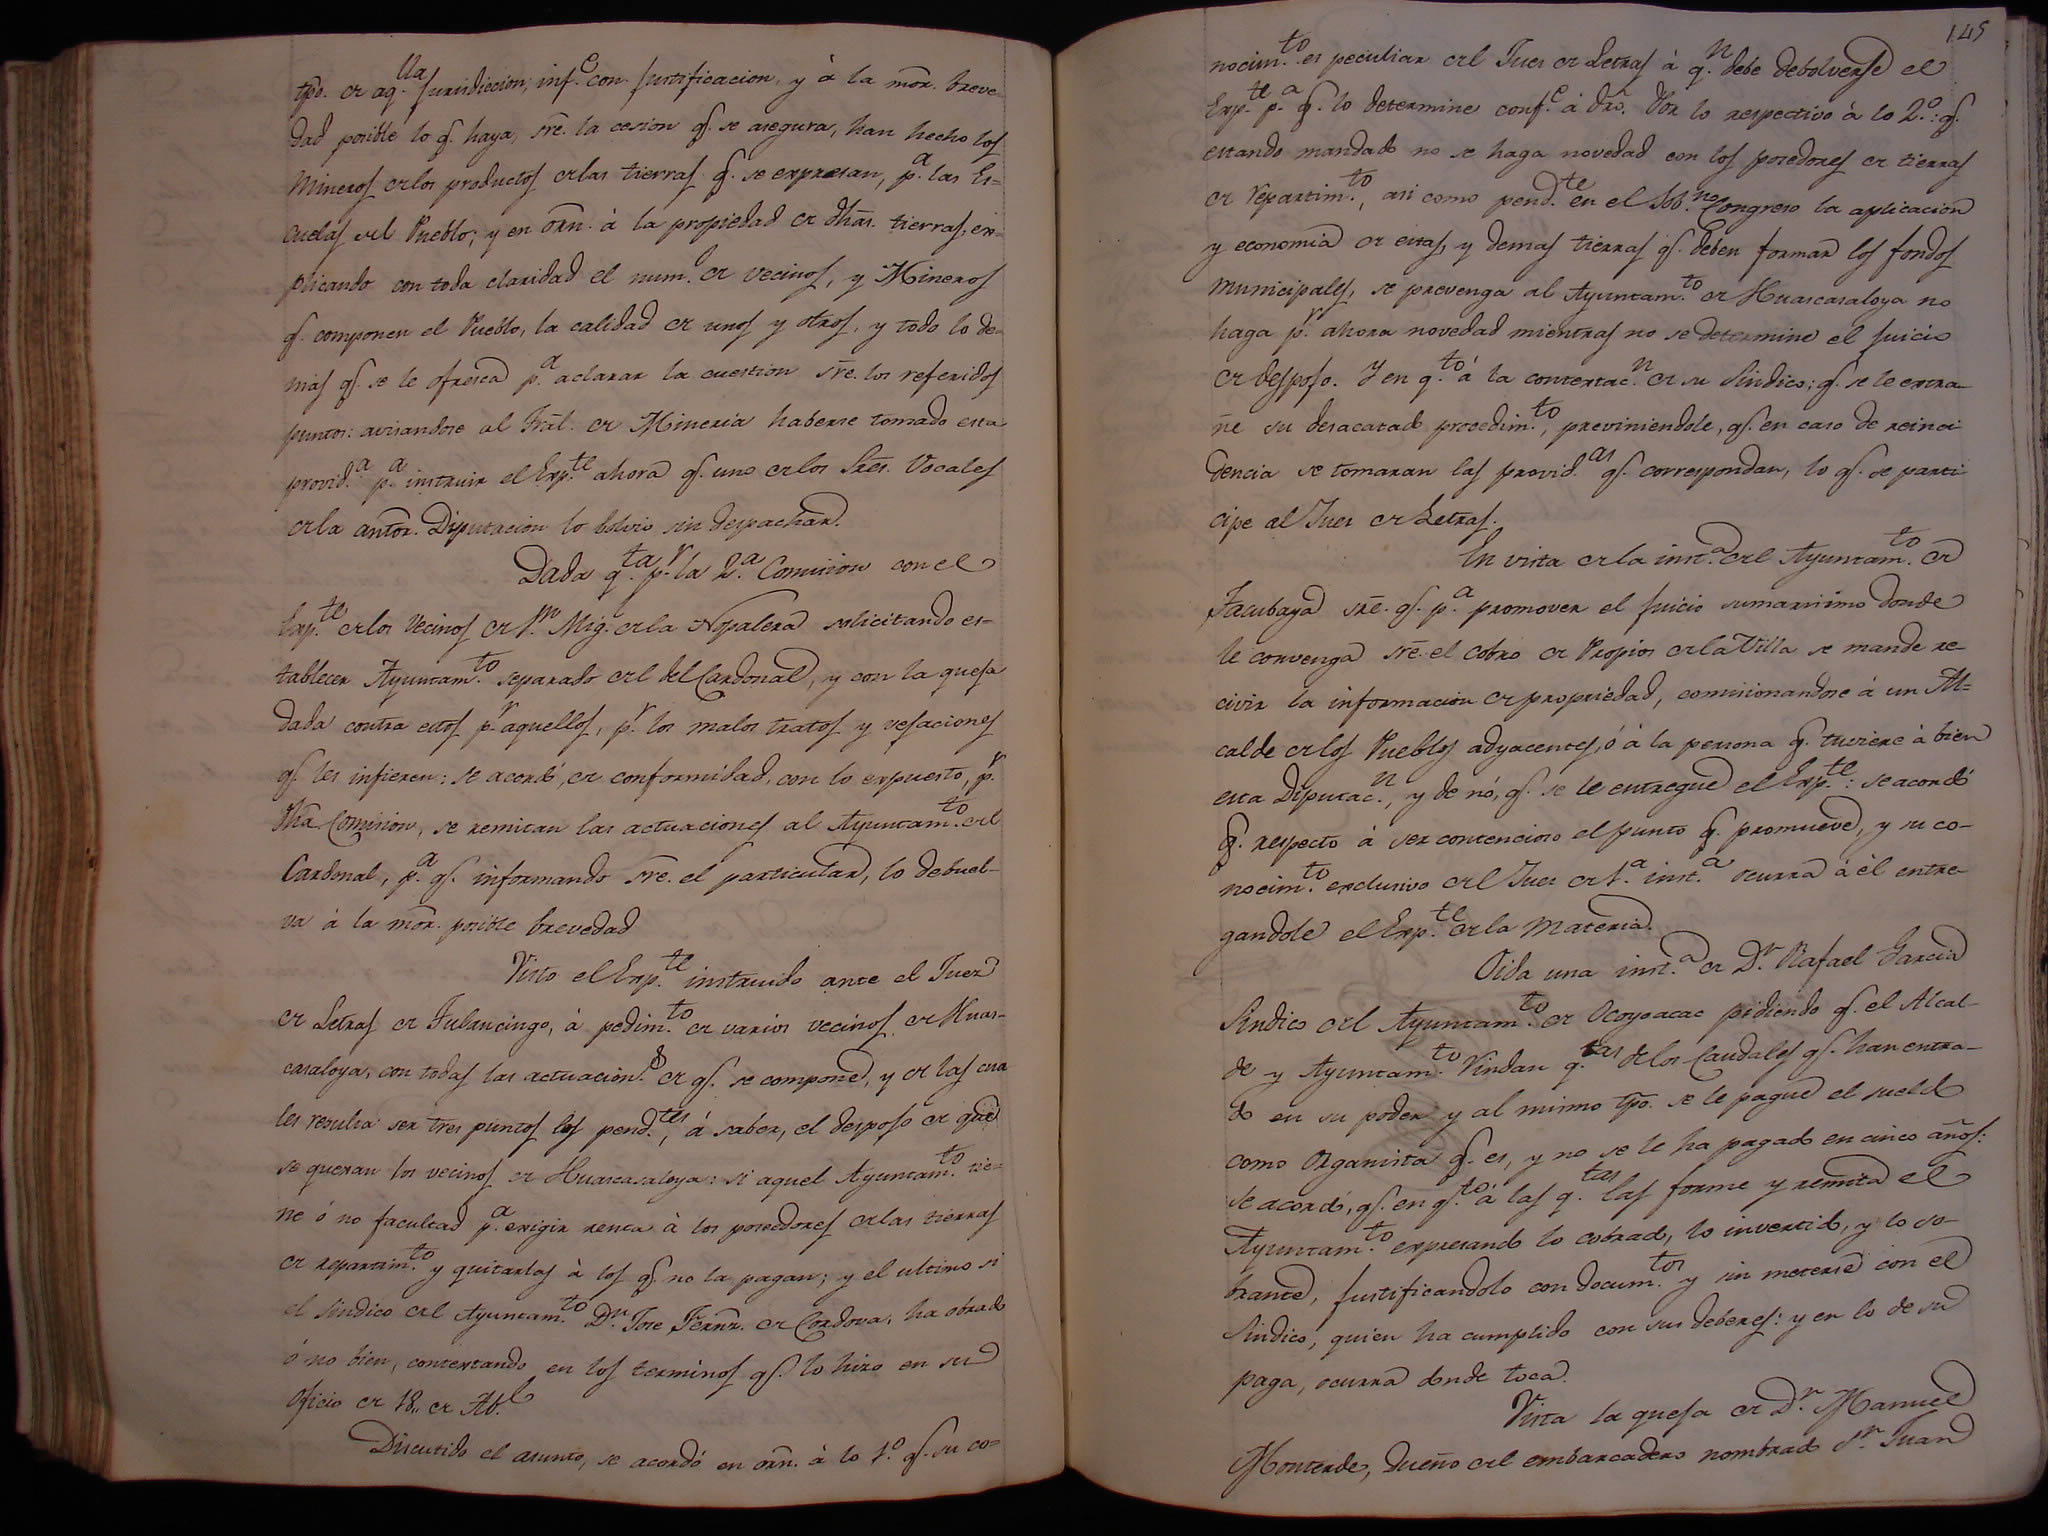 tpō. de aq.lla Jurisdiccion, inf.e con justificacion, y à la mōr. breve-
dad posible lo q.e haya, sr̄e. la cesion q.e se asegura, han hecho los
Mineros de los productos de las tierras q.e se expresan, p.a las Es-
cuelas del Pueblo; y en ōrn. à la propiedad de dhās. tierras, ex-
plicando con toda claridad el num.o de vecinos, y Mineros
q.e componen el Pueblo, la calidad de unos y otros, y todo lo de-
mas q.e se le ofresca p.a aclarar la cuestion sr̄e. los referidos
puntos: avisandose al Trāl. de Mineria haberse tomado esta
provid.a p.a instruir el Exp.te ahora q.e uno de los Sr̄es. Vocales
de la antōr. Diputacion lo bolvio sin despachar.
Dada q.ta p.r la 2.a Comision con el
Exp.te de los Vecinos de S.n Mig.l de la Nopalera solicitando es-
tablecer Ayuntam.to separado del del Cardonal, y con la quesa
dada contra estos p.r aquellos, p.r los malos tratos y vesaciones
q.e les infieren: se acordó, de conformidad, con lo expuesto, p.r
dhā Comision, se remitan las actuaciones al Ayuntam.to del
Cardonal, p.a q.e informando sr̄e. el particular, lo debuel-
va à la mōr. posible brevedad
Visto el Exp.te instruido ante el Juez
de Letras de Tulancingo, à pedim.to de varios vecinos de Huas-
casaloya, con todas las actuacion.s de q.e se compone, y de las cua
les resulta ser tres puntos los pend.tes, à saber, el desposo de que
se quexan los vecinos de Huascasaloya: si aquel Ayuntam.to tie-
ne ó no facultad p.a exigir renta à los poseedores de las tierras
de repartim.to y quitarlas à los q.e no la pagan; y el ultimo si
el Sindico del Ayuntam.to D.n Jose Fernz̄. de Cordova, ha obrado
ò no bien, contextando en los terminos q.e lo hizo en su
oficio de 18,, de Ab.l
Discutido el asunto, se acordó en ōrn. à lo 1.o q.e su co-
145
nocim.to es peculiar del Juez de Letras à q.n debe debolverse el
Exp.te p.a q.e lo determine conf.e à drō. Por lo respectivo à lo 2.o: q.e
estando mandado no se haga novedad con los posedores de tierras
de repartim.to, asi como pend.te en el Sob.no Congreso la aplicacion
y economia de estas, y demas tierras q.e deben formar los fondos
municipales, se prevenga al Ayuntam.to de Huascasaloya no
haga p.r ahora novedad mientras no se determine el juicio
de desposo. Y en q.to á la contextac.n de su Sindico; q.e se le extra-
ñe su desacatado procedim.to, previniendole, q.e en caso de reinci
dencia se tomaran las provid.as q.e correspondan, lo q.e se parti
cipe al Juez de Letras.
En vista de la inst.a del Ayuntam.to de
Tacubaya sr̄e. q.e p.a promover el juicio sumarisimo donde
le convenga sr̄e. el cobro de Propios de la Villa se mande re-
civir la informacion de propriedad, comisionandose á un Al=
calde de los Pueblos adyacentes, ó à la persona q.e tuviere à bien
esta Diputac.n, y de nó, q.e se le entregue el Exp.te: se acordó
q.e respecto á ser contencioso el punto q.e promueve, y su co-
nocim.to exclusivo del Juez de 1.a inst.a ocurra á él entre-
gandole el Exp.te de la Materia.
Oida una inst.a de D.n Rafael Garcia
Sindico del Ayuntam.to de Ocoyoacac pidiendo q.e el Alcal-
de y Ayuntam.to rindan q.tas de los Caudales q.e han entra-
do en su poder y al mismo tpō. se le pague el sueldo
como Organista q.e es, y no se le ha pagado en cinco años:
se acordó, q.e en q.to à las q.tas las forme y remita el
Ayuntam.to expresando lo cobrado, lo invertido, y lo so-
brante, justificandolo con docum.tos y sin meterse con el
Sindico, quien ha cumplido con sus deberes: y en lo de su
paga, ocurra donde toca.
Vista la quesa de D.n Manuel
Monterde, dueño del embarcadero nombrado S.n Juan